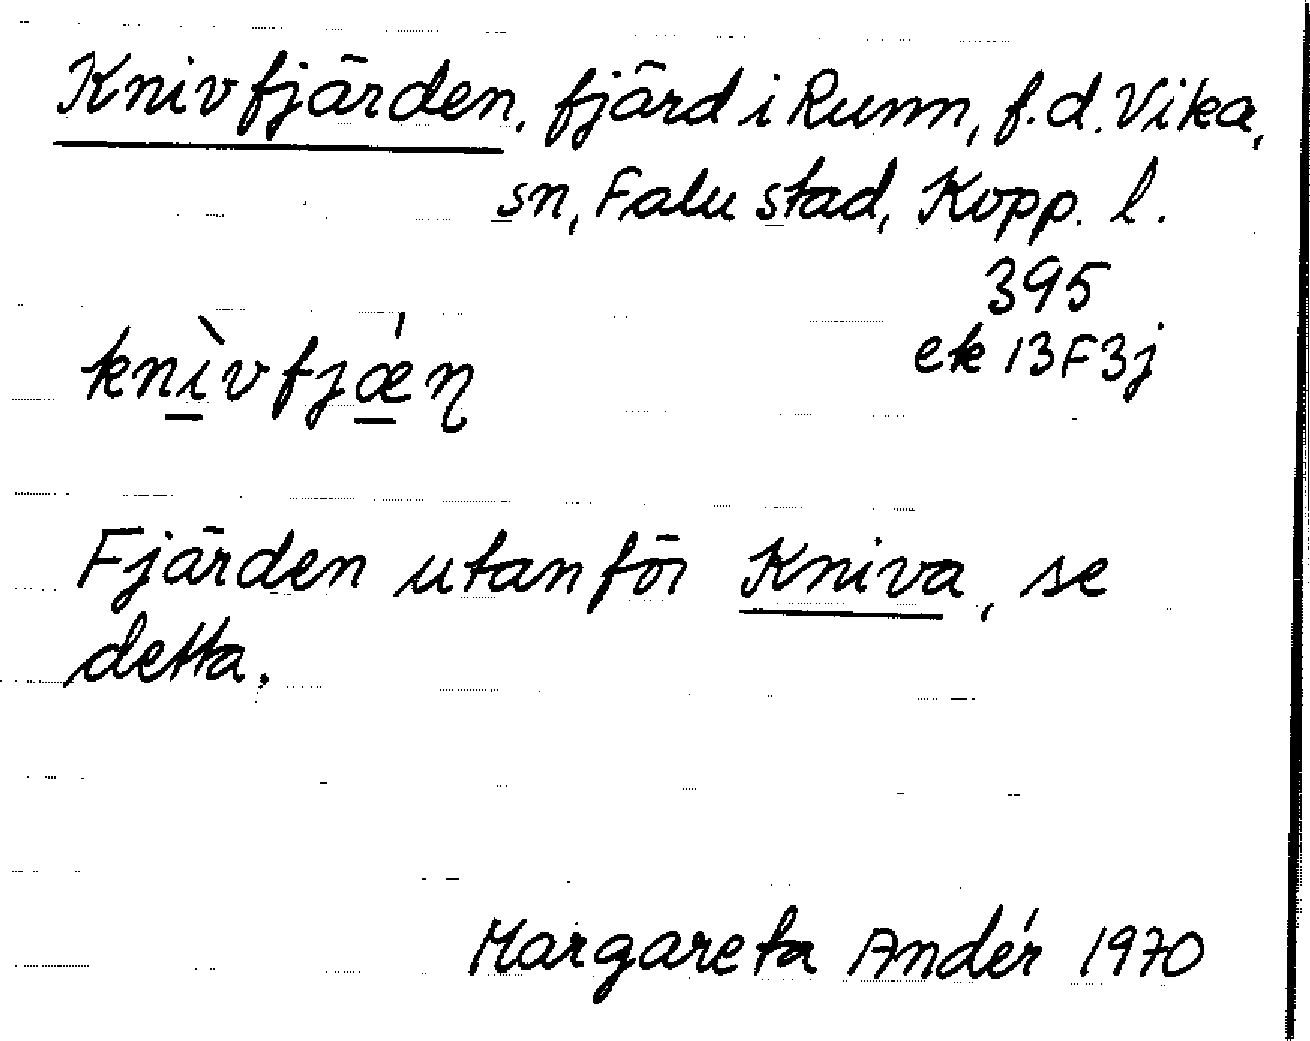 Knivfjärden, fjärd i Runn, f.d. Vika,
sn, Falu stad, Kopp. l.
395
ek 13F3j
knìvfjǽṇ
Fjärden utanför Kniva, se
detta.
Margareta Andér 1970